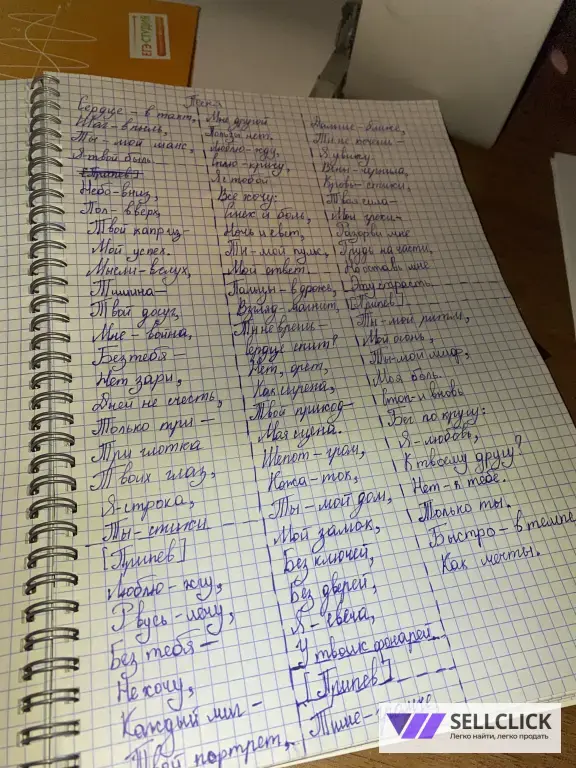 ЕГЭ-СТУДИЯ
Песня
Сердце – в такт,
Шаг – в пыль,
Ты – мой шанс,
Я – твой быль.
[Припев]
Небо – вниз,
Пол – вверх,
Твой каприз –
Мой успех.
Мысли – вслух,
Тишина –
Твой досуг,
Мне – война,
Без тебя –
Нет зари,
Дней не счесть,
Только три –
Три глотка
Твоих глаз,
Я – строка,
Ты – стихи –
[Припев]
Люблю – жгу,
Рвусь – лечу,
Без тебя –
Не хочу,
Каждый миг –
Твой портрет,
Мне другой
нет,
Люблю – жду,
Сплю – кричу,
Я с тобой
Всё хочу:
Смех и боль,
Ночь и свет,
Ты – мой пульс,
Мой ответ.
Пальцы – в дрожь,
Взгляд – магнит,
Ты не врёшь –
Сердце спит?
Нет, орёт,
Как сирена,
Твой приход –
Моя сцена.
Шепот – гром,
Кожа – ток,
Ты – мой дом,
Мой замок,
Без ключей,
Без дверей,
Я – свеча,
У твоих фонарей.
[Припев]
Дальше – ближе,
Я увижу
Вены – чернила,
Буквы – стихи,
Твоя сила –
Мои грехи.
Разорви мне
Грудь на части,
Но оставь мне
[Припев].
Ты – мой ритм,
Мой огонь,
Ты – мой миф,
Моя боль.
Стоп – и вновь
Бег по кругу:
Я – любовь,
К твоему другу?
Нет – к тебе.
Только ты.
Быстро – в темпе,
Как мечты.
SELLCLICK
Легко найти, легко продать